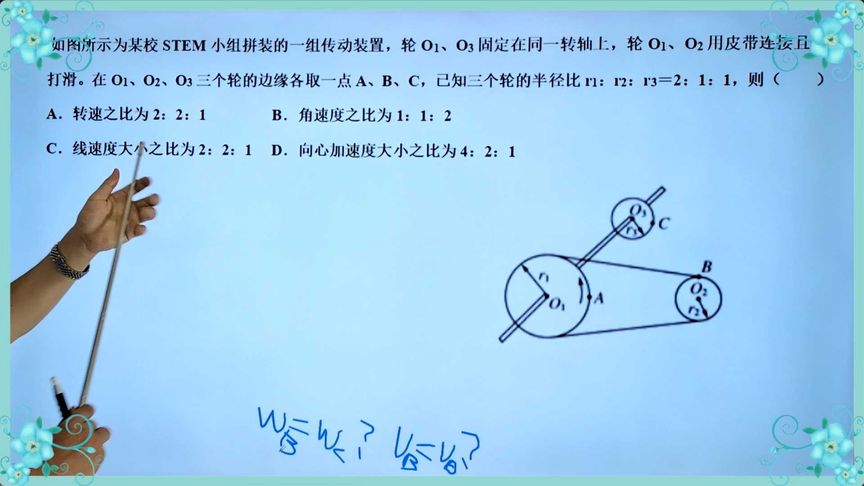 如图所示为某校 STEM 小组拼装的一组传动装置，轮 O₁、O₃固定在同一转轴上，轮 O₁、O₂ 用皮带连接且
打滑。在 O₁、O₂、O₃三个轮的边缘各取一点 A、B、C，已知三个轮的半径比 r₁：r₂：r₃＝2：1：1，则（　　）
A．转速之比为 2：2：1　　B．角速度之比为 1：1：2
C．线速度大小之比为 2：2：1　D．向心加速度大小之比为 4：2：1
O₃
r₃
C
B
r₁
O₁
A
O₂
r₂